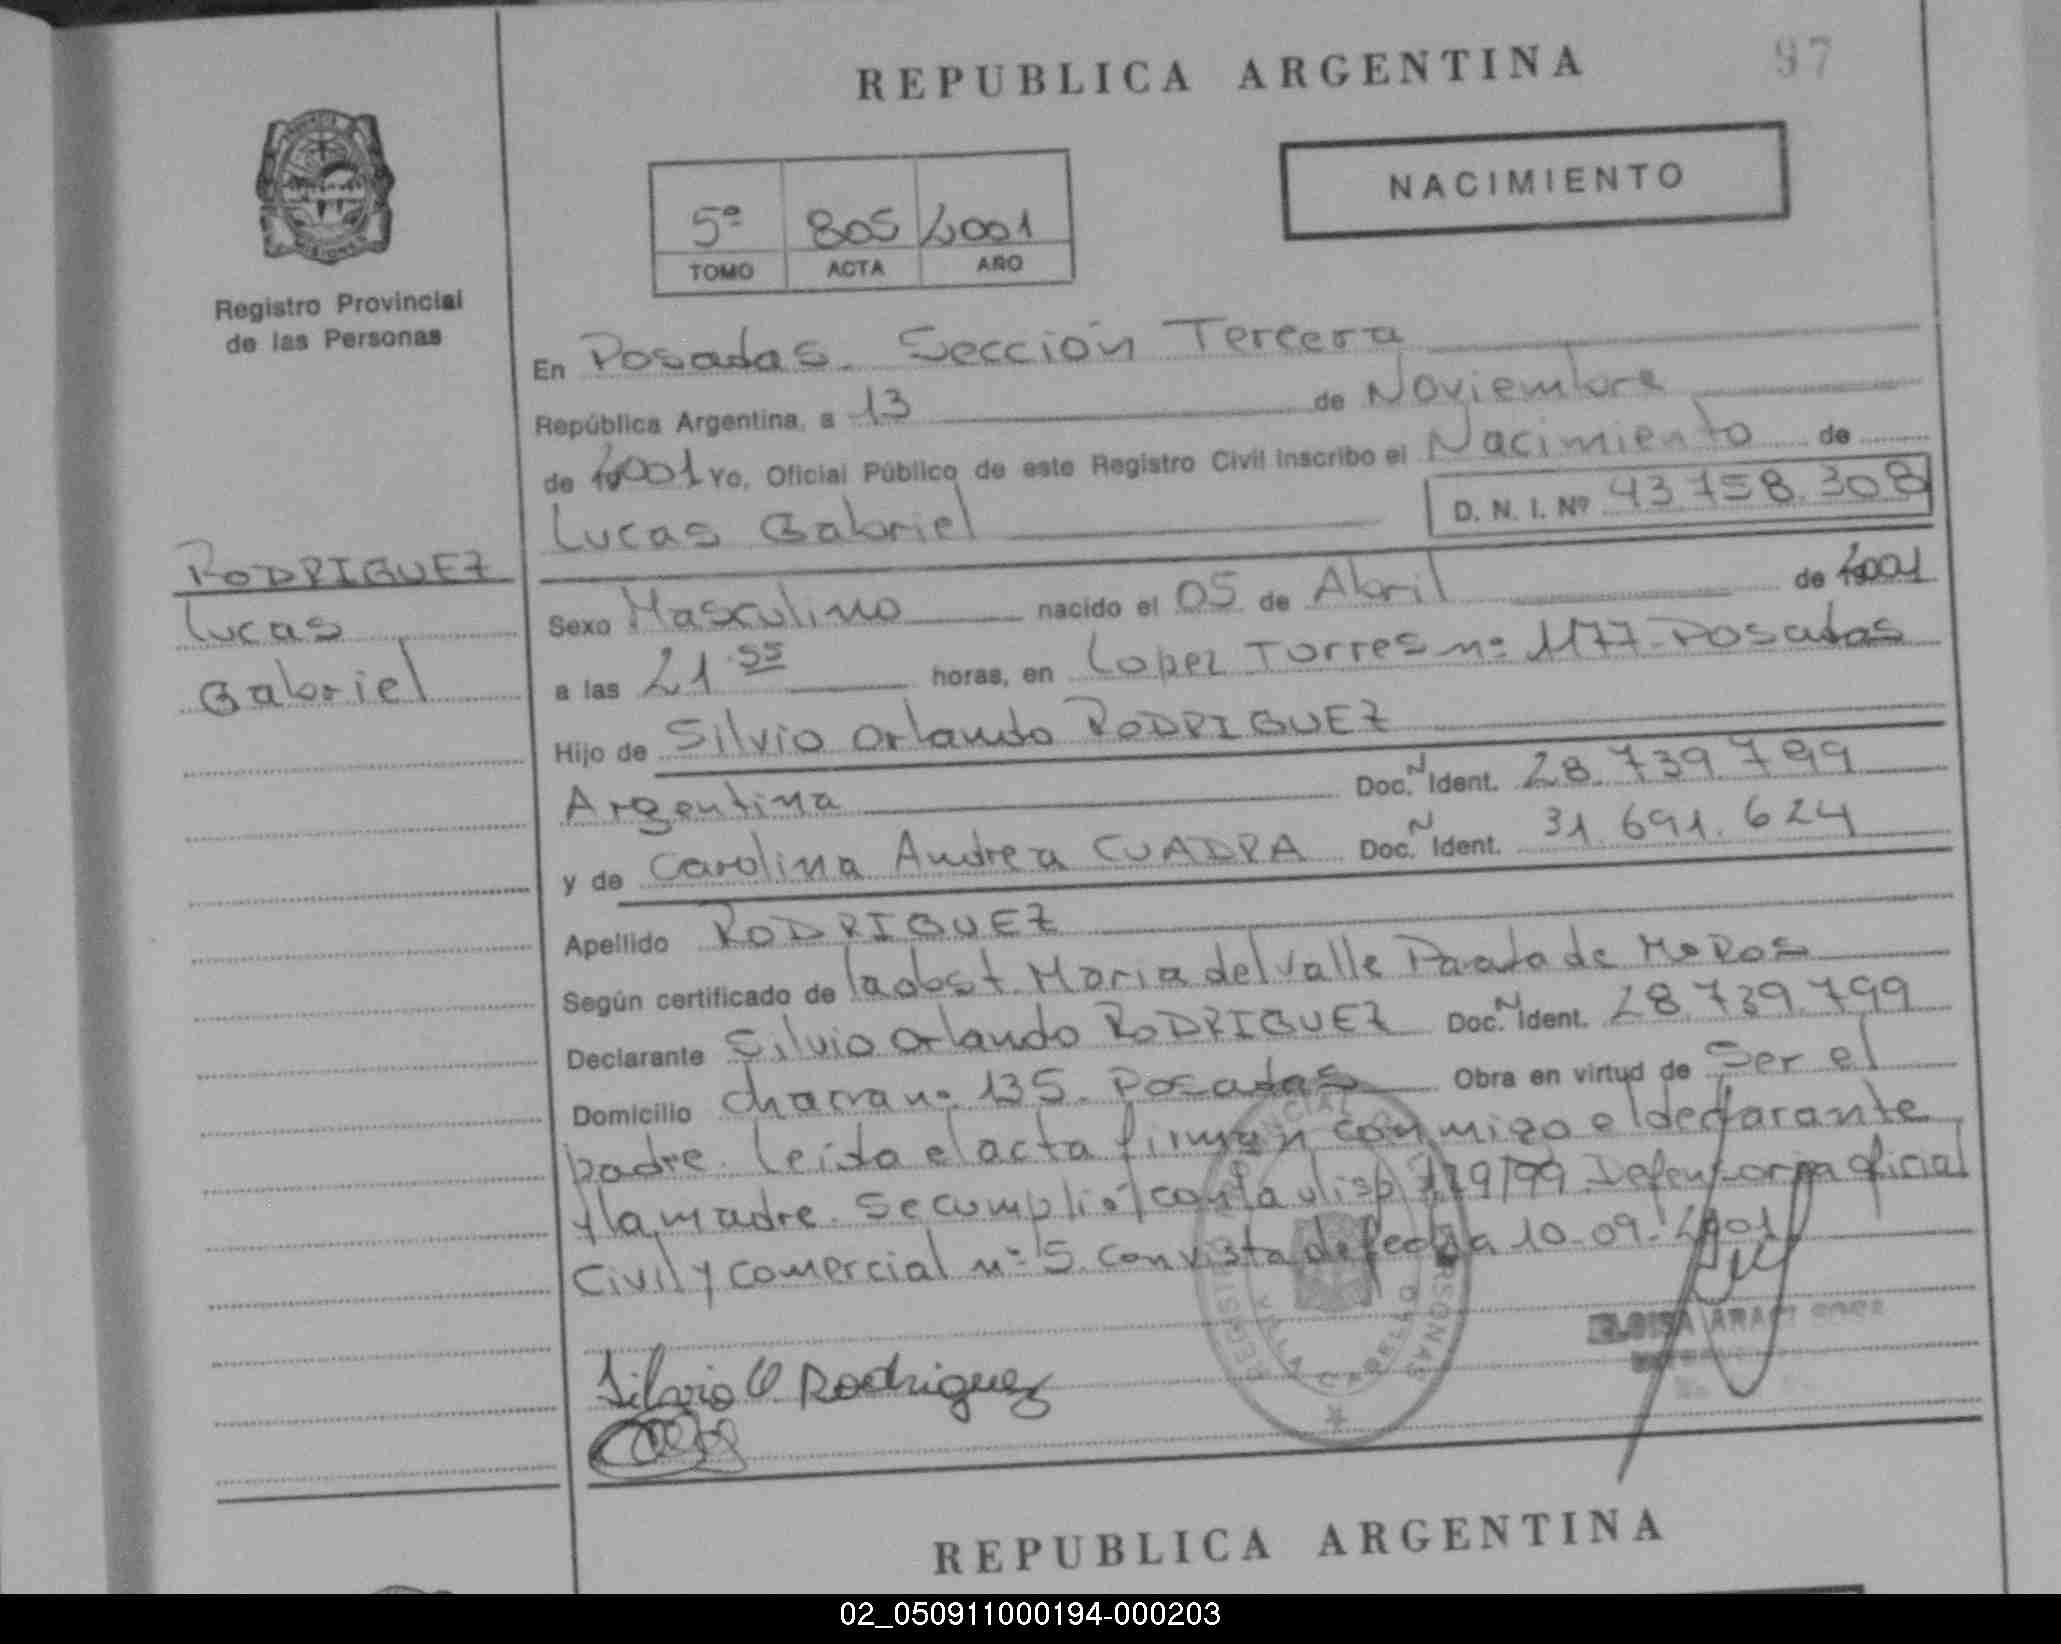 REPUBLICA ARGENTINA
97
NACIMIENTO
5º 805 2001
TOMO ACTA AÑO
Registro Provincial
de las Personas
En Posadas. Sección Tercera
República Argentina, a 13 de Noviembre
de 2001 Yo, Oficial Público de este Registro Civil inscribo el Nacimiento de
Lucas Gabriel D. N. I. Nº 43.758.308
RODRIGUEZ
Lucas
Gabriel
Sexo Masculino nacido el 05 de Abril de 2001
a las 21.55 horas, en Lopez Torres nº 1177-Posadas
Hijo de Silvio Orlando RODRIGUEZ
Argentina Doc. N Ident. 28.739.799
y de Carolina Andrea CUADRA Doc. N Ident. 31.691.624
Apellido RODRIGUEZ
Según certificado de la obst. Maria del Valle de
Declarante Silvio Orlando RODRIGUEZ Doc. N Ident. 28.739.799
Domicilio chacra nº 135. Posadas Obra en virtud de Ser el
padre. Leida el acta firman conmigo el declarante
y la madre. Se cumplió con la disp 119/99 Defensoria oficial
Civil y comercial nº 5. con vista de fecha 10-09-2001
Silvio O Rodriguez
REGISTRO PROVINCIAL DE LAS PERSONAS
VILLA CABELLO
ELOISA
REPUBLICA ARGENTINA
02_050911000194-000203